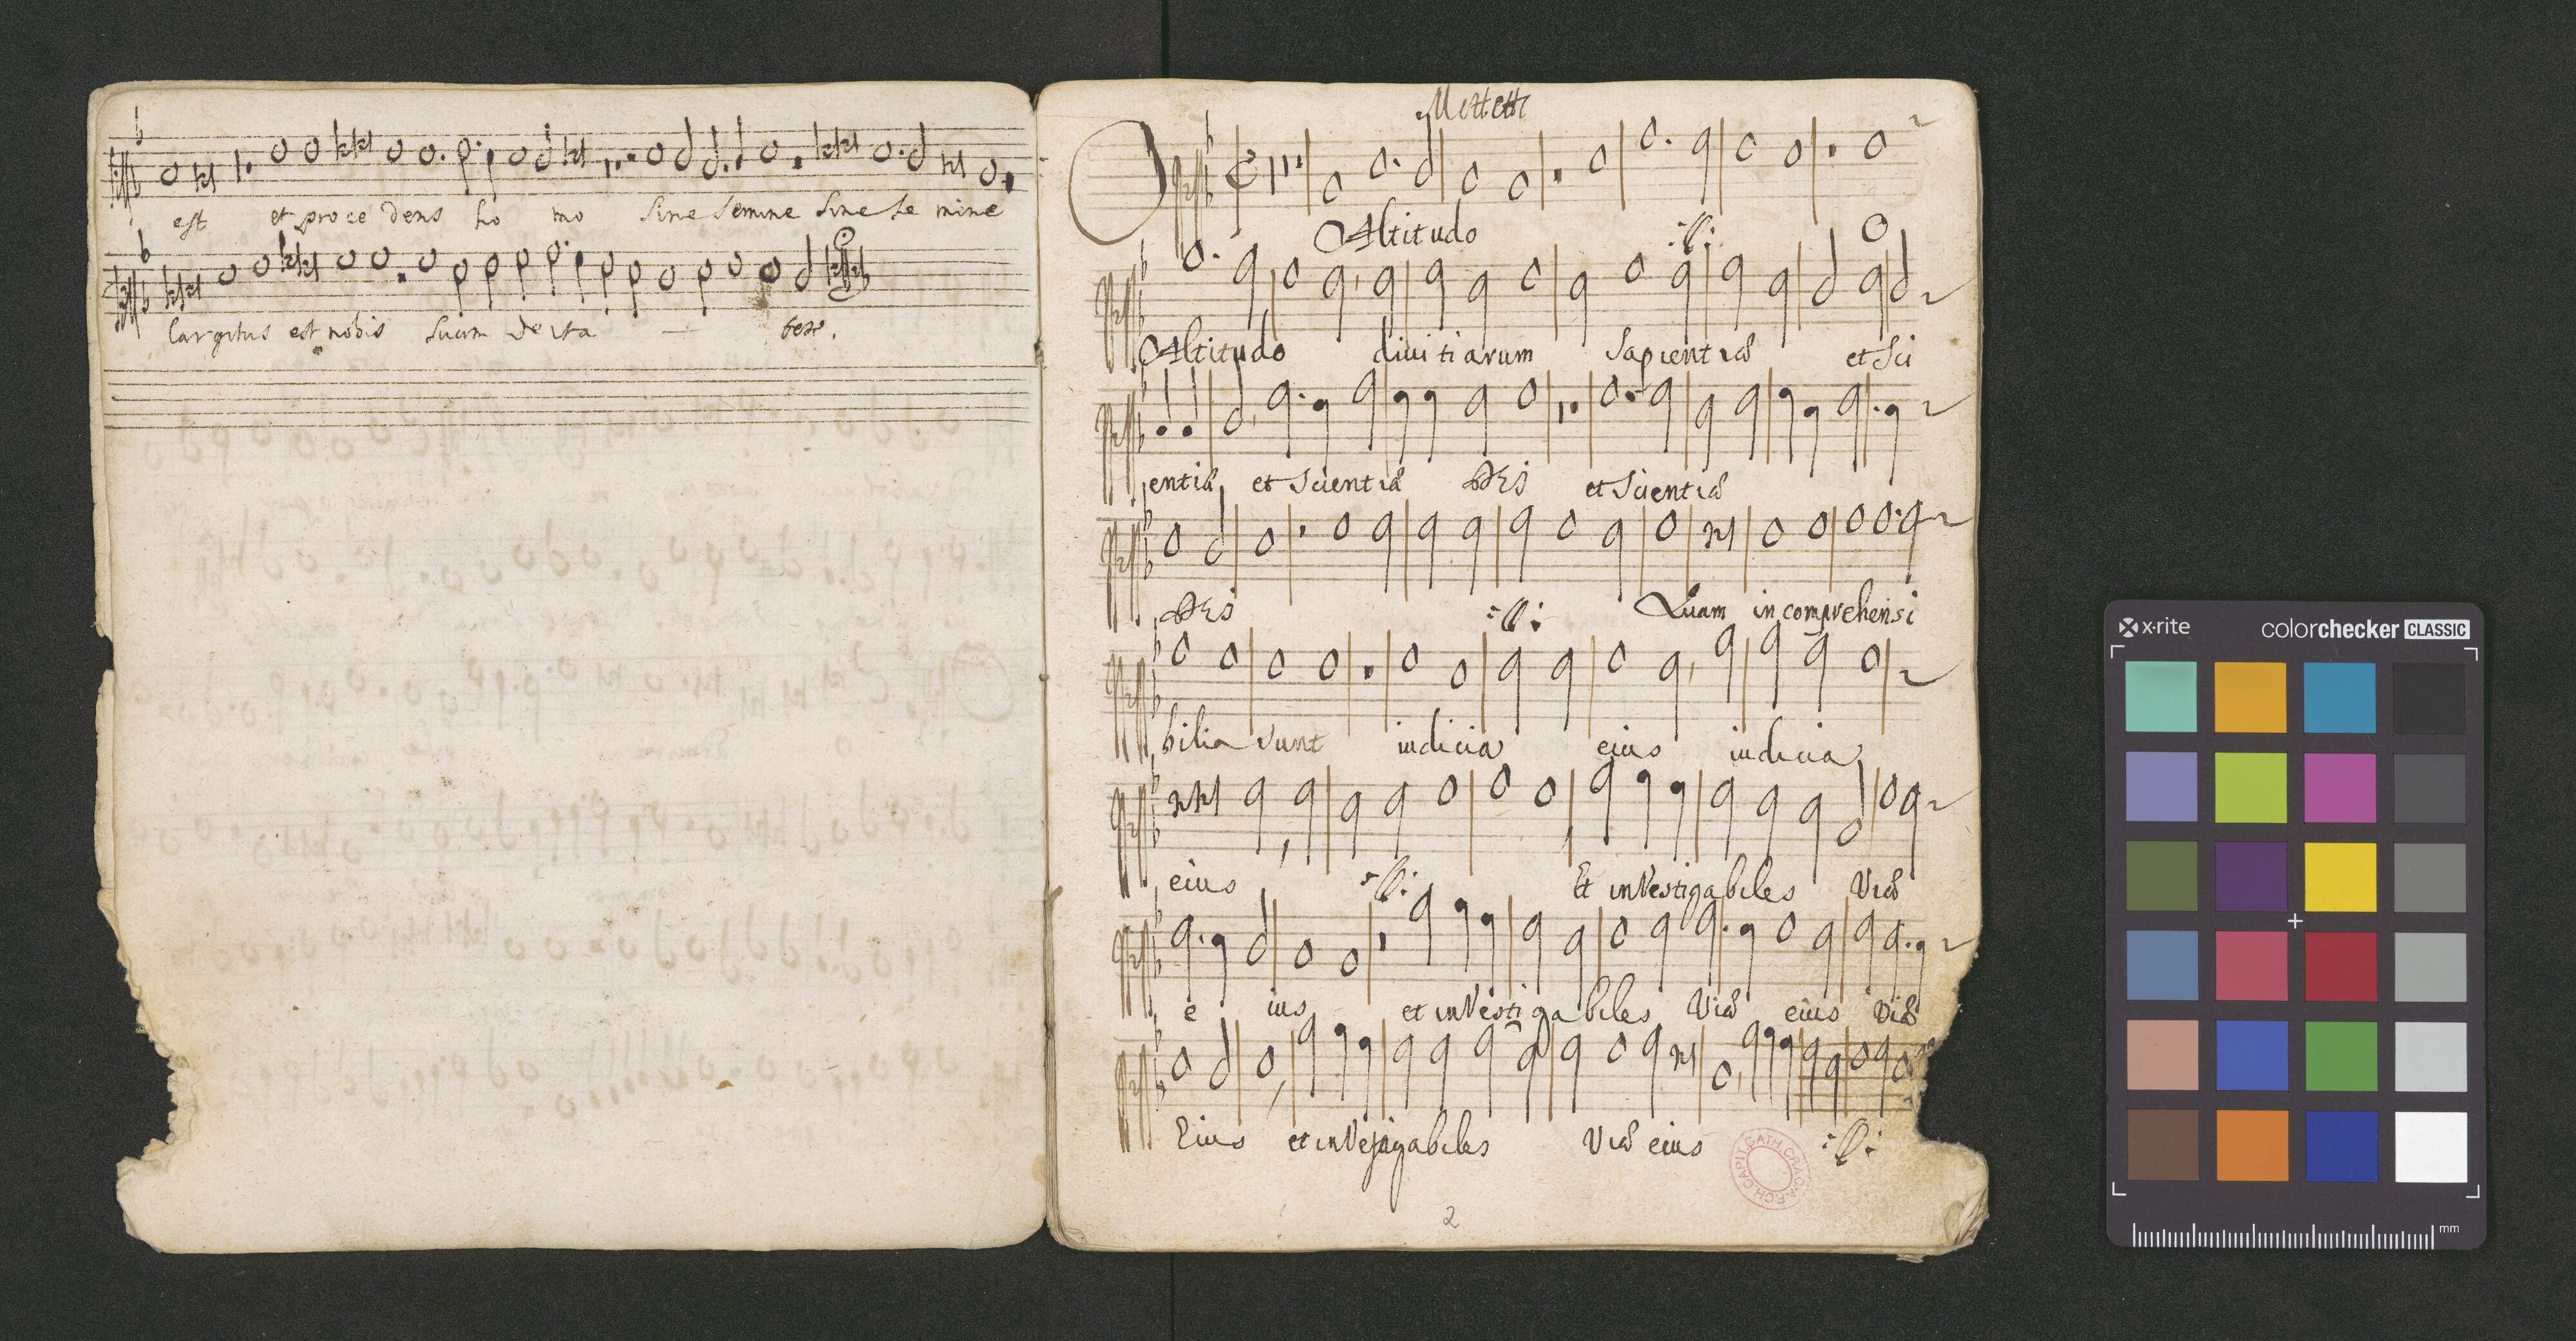 est et proce dens ho mo sine semine sine se mine
largitus est nobis suam deita - tem.
Mottett
O
Altitudo :ll:
O
Altitudo diuitiarum sapientiæ et sci
entiæ et scientiæ DEi et scientiæ
DEi :ll: Quam incomprehensi
bilia sunt iudicia eius iudicia
eius :ll: Et inVestigabiles Viæ
e ius et inVestigabiles Viæ eius Viæ
Eius et inVestigabiles Viæ eius :ll:
2
x-rite colorchecker CLASSIC
mm